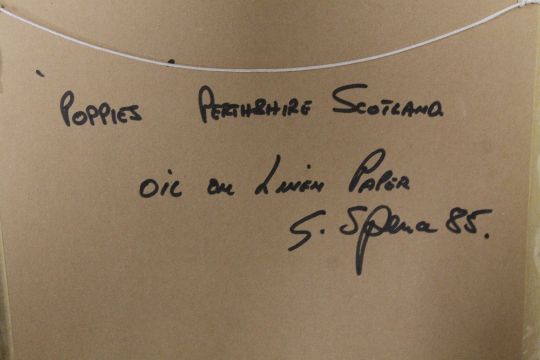 POPPIES PERTHSHIRE SCOTLAND.
OIL ON LINEN PAPER
G. Spena 85.